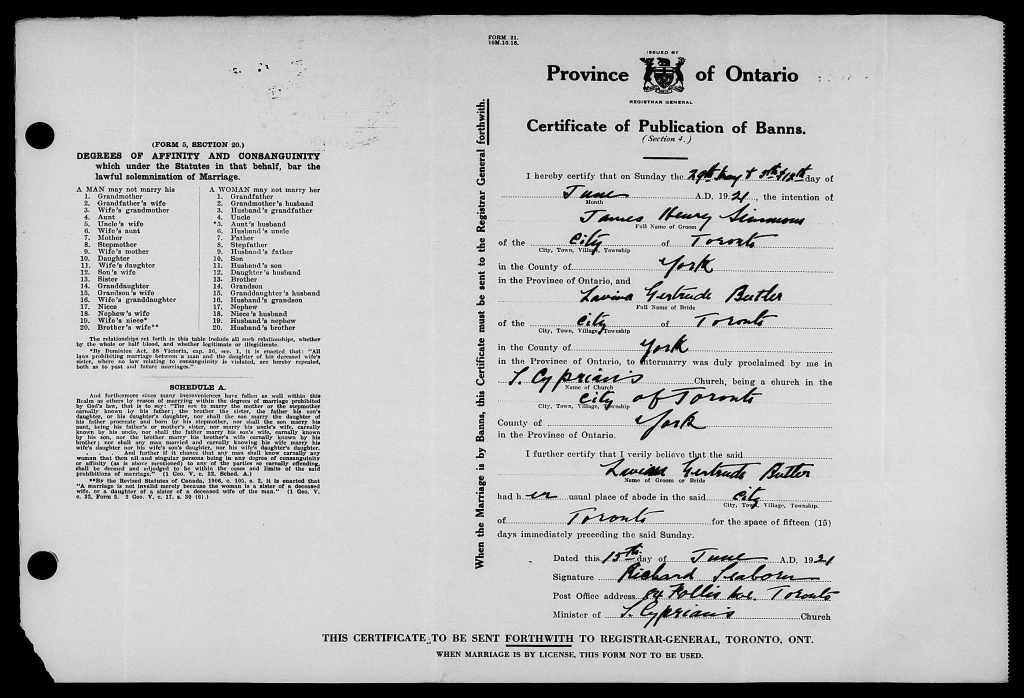 FORM 21.
10M.10.18.
(FORM 5, SECTION 20.)
DEGREES OF AFFINITY AND CONSANGUINITY
which under the Statutes in that behalf, bar the
lawful solemnization of Marriage.
A MAN may not marry his
1. Grandmother
2. Grandfather's wife
3. Wife's grandmother
4. Aunt
5. Uncle's wife
6. Wife's aunt
7. Mother
8. Stepmother
9. Wife's mother
10. Daughter
11. Wife's daughter
12. Son's wife
13. Sister
14. Granddaughter
15. Grandson's wife
16. Wife's granddaughter
17. Niece
18. Nephew's wife
19. Wife's niece*
20. Brother's wife**
A WOMAN may not marry her
1. Grandfather
2. Grandmother's husband
3. Husband's grandfather
4. Uncle
*5. Aunt's husband
6. Husband's uncle
7. Father
8. Stepfather
9. Husband's father
10. Son
11. Husband's son
12. Daughter's husband
13. Brother
14. Grandson
15. Granddaughter's husband
16. Husband's grandson
17. Nephew
18. Niece's husband
19. Husband's nephew
20. Husband's brother
The relationships set forth in this table include all such relationships, whether
by the whole or half blood, and whether legitimate or illegitimate.
*By Dominion Act, 38 Victoria, cap. 36, sec. 1, it is enacted that: "All
laws prohibiting marriage between a man and the daughter of his deceased wife's
sister, where no law relating to consanguinity is violated, are hereby repealed,
both as to past and future marriages."
SCHEDULE A.
And furthermore since many inconveniences have fallen as well within this
Realm as others by reason of marrying within the degrees of marriage prohibited
by God's law, that is to say: "The son to marry the mother or the stepmother
carnally known by his father; the brother the sister, the father his son's
daughter, or his daughter's daughter, nor shall the son marry the daughter of
his father procreate and born by his stepmother, nor shall the son marry his
aunt, being his father's or mother's sister, nor marry his uncle's wife, carnally
known by his uncle, nor shall the father marry his son's wife, carnally known
by his son, nor the brother marry his brother's wife carnally known by his
brother; nor shall any man married and carnally knowing his wife marry his
wife's daughter nor his wife's son's daughter, nor his wife's daughter's daughter.
. . . And further if it chance that any man shall know carnally any
woman that then all and singular persons being in any degree of consanguinity
or affinity (as is above mentioned) to any of the parties so carnally offending,
shall be deemed and adjudged to be within the cases and limits of the said
prohibitions of marriage." (1 Geo. V. c. 32, Sched. A.)
**By the Revised Statutes of Canada, 1906, c. 105, s. 2, it is enacted that
"A marriage is not invalid merely because the woman is a sister of a deceased
wife, or a daughter of a sister of a deceased wife of the man." (1 Geo. V.
c. 32, Form 5. 3 Geo. V. c. 17. s. 30 (6).)
When the Marriage is by Banns, this Certificate must be sent to the Registrar General forthwith.
ISSUED BY
Province of Ontario
REGISTRAR GENERAL
Certificate of Publication of Banns.
(Section 4.)
I hereby certify that on Sunday the 29th May & 5th & 12th day of
June A.D. 1921, the intention of
Month
James Henry Simmons
Full Name of Groom
of the City of Toronto
City, Town, Village, Township
in the County of York
in the Province of Ontario, and
Lavina Gertrude Butler
Full Name of Bride
of the City of Toronto
City, Town, Village, Township
in the County of York
in the Province of Ontario, to intermarry was duly proclaimed by me in
S. Cyprian's Church, being a church in the
Name of Church
City of Toronto
City, Town, Village, Township
County of York
in the Province of Ontario.
I further certify that I verily believe that the said
Lavina Gertrude Butler
Name of Groom or Bride
had h er usual place of abode in the said City
City, Town, Village, Township.
of Toronto for the space of fifteen (15)
days immediately preceding the said Sunday.
Dated this 15th day of June A.D. 1921
Signature Richard Seaborn
Post Office address 84 Follis Ave. Toronto
Minister of S. Cyprian's Church
THIS CERTIFICATE TO BE SENT FORTHWITH TO REGISTRAR-GENERAL, TORONTO, ONT.
WHEN MARRIAGE IS BY LICENSE, THIS FORM NOT TO BE USED.